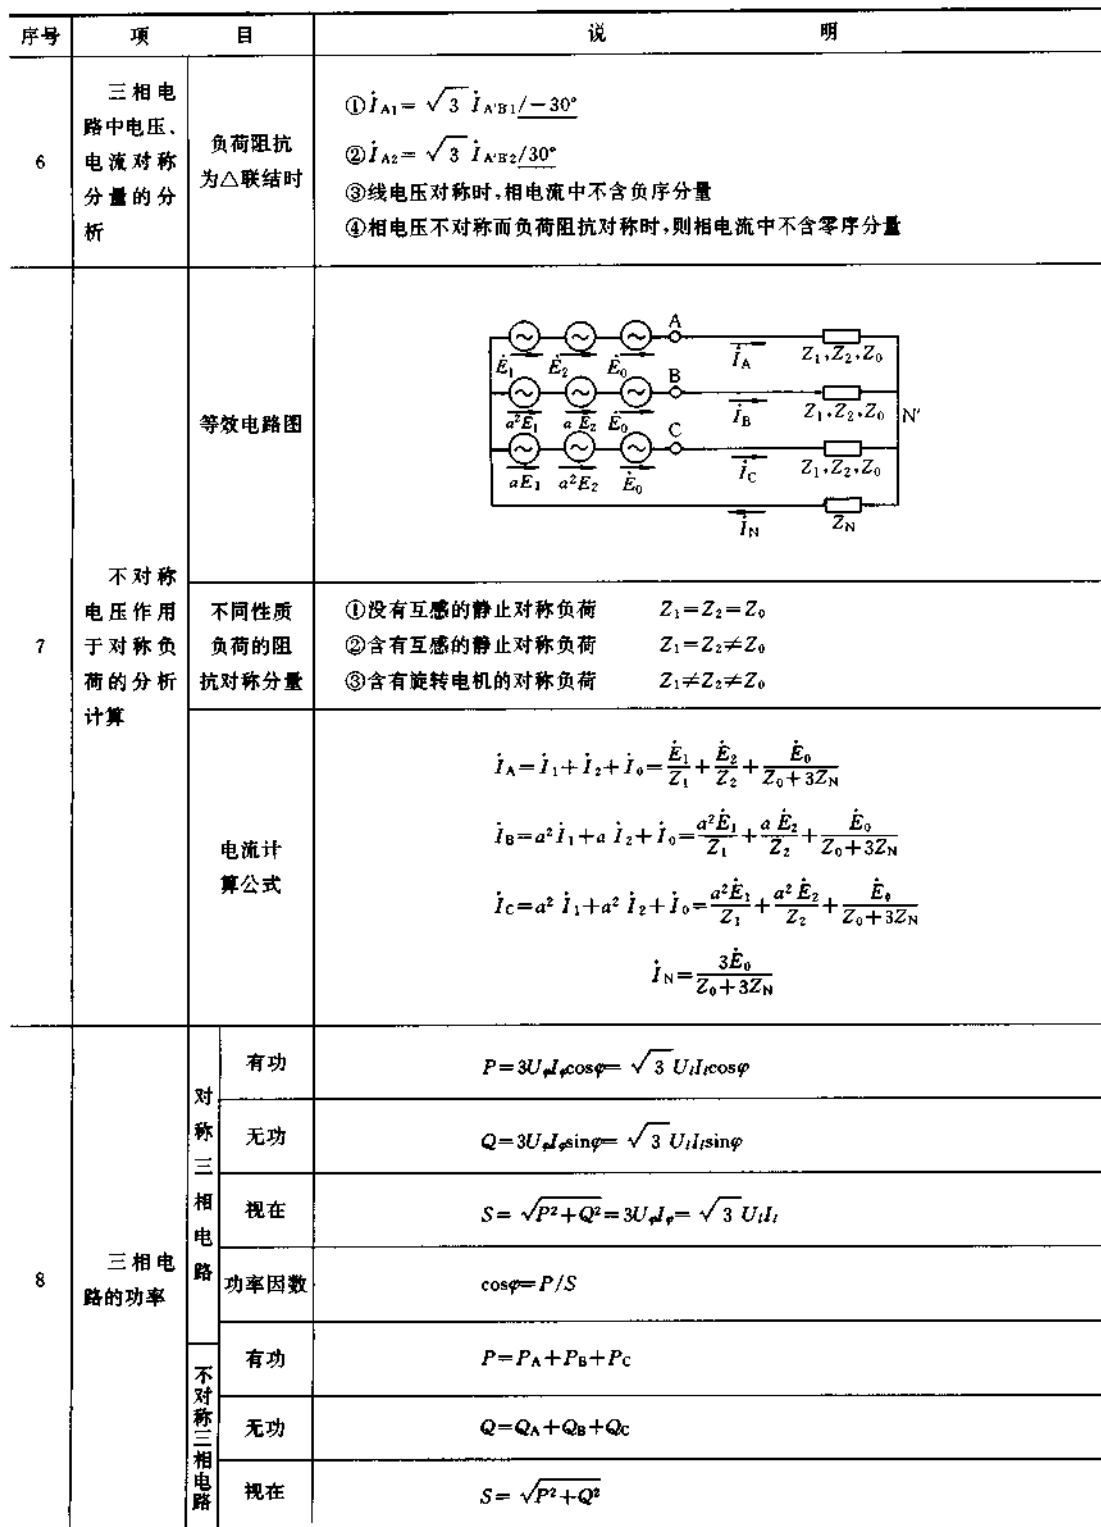 序号 项 目 说 明
6
三相电
路中电压、
电流对称
分量的分
析
负荷阻抗
为△联结时
①İA1=√3 İA'B1/−30°
②İA2=√3 İA'B2/30°
③线电压对称时,相电流中不含负序分量
④相电压不对称而负荷阻抗对称时,则相电流中不含零序分量
7
不对称
电压作用
于对称负
荷的分析
计算
等效电路图
A
Ė1 Ė2 Ė0 İA Z1,Z2,Z0
B
a²E1 a E2 Ė0 İB Z1,Z2,Z0 N'
C
aE1 a²E2 Ė0 İC Z1,Z2,Z0
İN ZN
不同性质
负荷的阻
抗对称分量
①没有互感的静止对称负荷 Z1=Z2=Z0
②含有互感的静止对称负荷 Z1=Z2≠Z0
③含有旋转电机的对称负荷 Z1≠Z2≠Z0
电流计
算公式
İA=İ1+İ2+İ0=Ė1/Z1+Ė2/Z2+Ė0/(Z0+3ZN)
İB=a²İ1+a İ2+İ0=a²Ė1/Z1+a Ė2/Z2+Ė0/(Z0+3ZN)
İC=a² İ1+a² İ2+İ0=a²Ė1/Z1+a² Ė2/Z2+Ė0/(Z0+3ZN)
İN=3Ė0/(Z0+3ZN)
8
三相电
路的功率
对称三相电路
有功 P=3UφIφcosφ=√3 UlIlcosφ
无功 Q=3UφIφsinφ=√3 UlIlsinφ
视在 S=√(P²+Q²)=3UφIφ=√3 UlIl
功率因数 cosφ=P/S
不对称三相电路
有功 P=PA+PB+PC
无功 Q=QA+QB+QC
视在 S=√(P²+Q²)